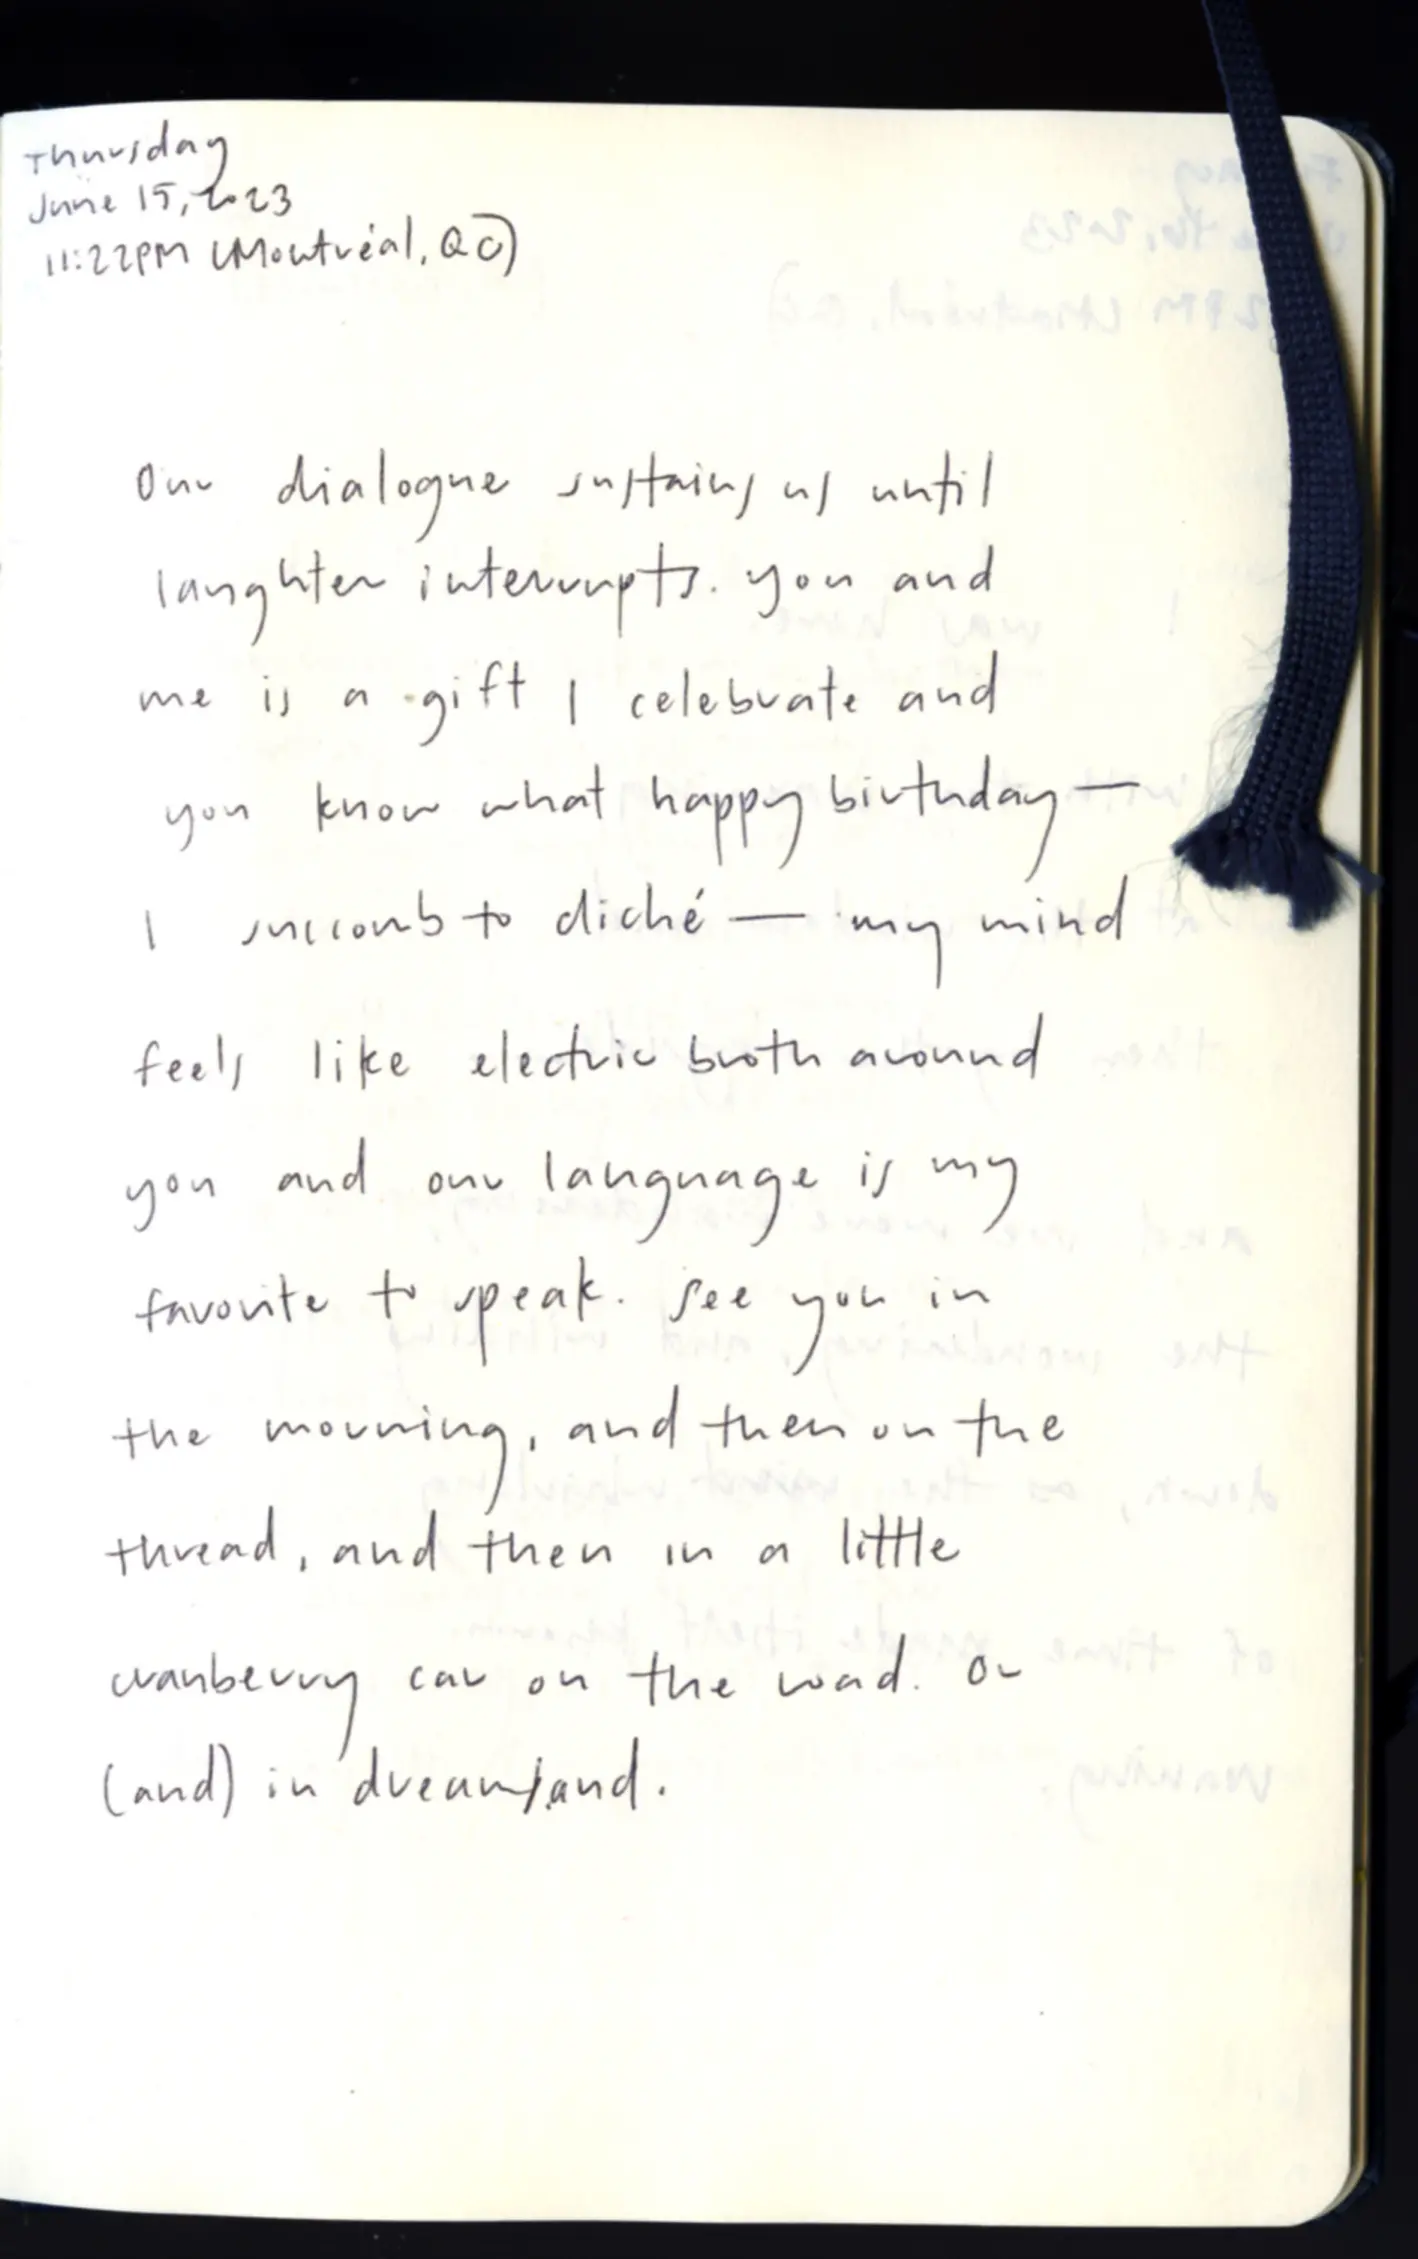 Thursday
June 15, 2023
11:22PM (Montréal, QC)
Our dialogue sustains us until
laughter interrupts. you and
me is a gift I celebrate and
you know what happy birthday —
I succomb to cliché — my mind
feels like electric broth around
you and our language is my
favorite to speak. See you in
the morning, and then on the
thread, and then in a little
cranberry car on the road. Or
(and) in dreamland.